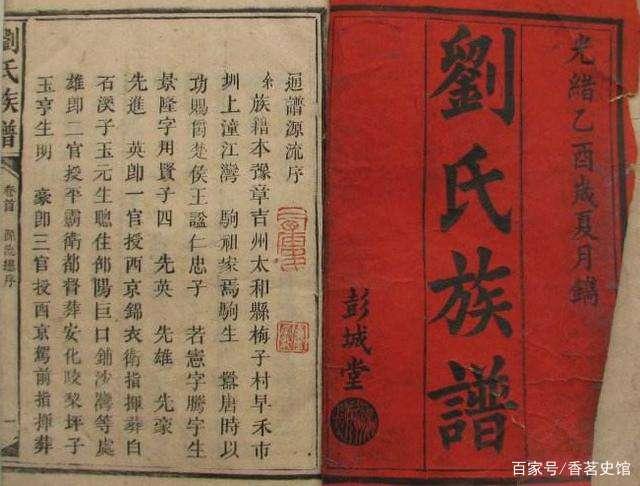 光緒乙酉歲夏月鐫
劉氏族譜
彭城堂
通譜源流序
余族籍本豫章吉州太和縣梅子村早禾市
圳上潼江灣　駒祖家焉駒生　囂唐時以
功賜爵楚侯王謚仁忠子　若憲字騰宇生
景隆字用賢子四　先英　先雄　先豪
先進　英即一官授西京錦衣衛指揮葬白
石溪子玉元生聰住邵陽巨口鋪沙灣等處
雄即二官授平霸衛都督葬安化陵坪子
玉亨生明　豪即三官授西京駕前指揮葬
劉氏族譜
卷首
源流總序
一
百家号/香茗史馆